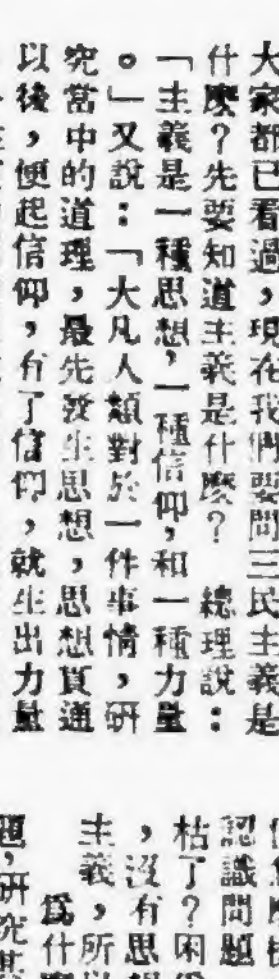 大家都已看過，現在我們要問三民主義是
什麼？先要知道主義是什麼？　總理說：
「主義是一種思想，一種信仰，和一種力量
。」又說：「大凡人類對於一件事情，研
究當中的道理，最先發生思想，思想貫通
以後，便起信仰，有了信仰，就生出力量
認識問題
枯了？困
，沒有思
主義，所以
為什麼
題，研究其